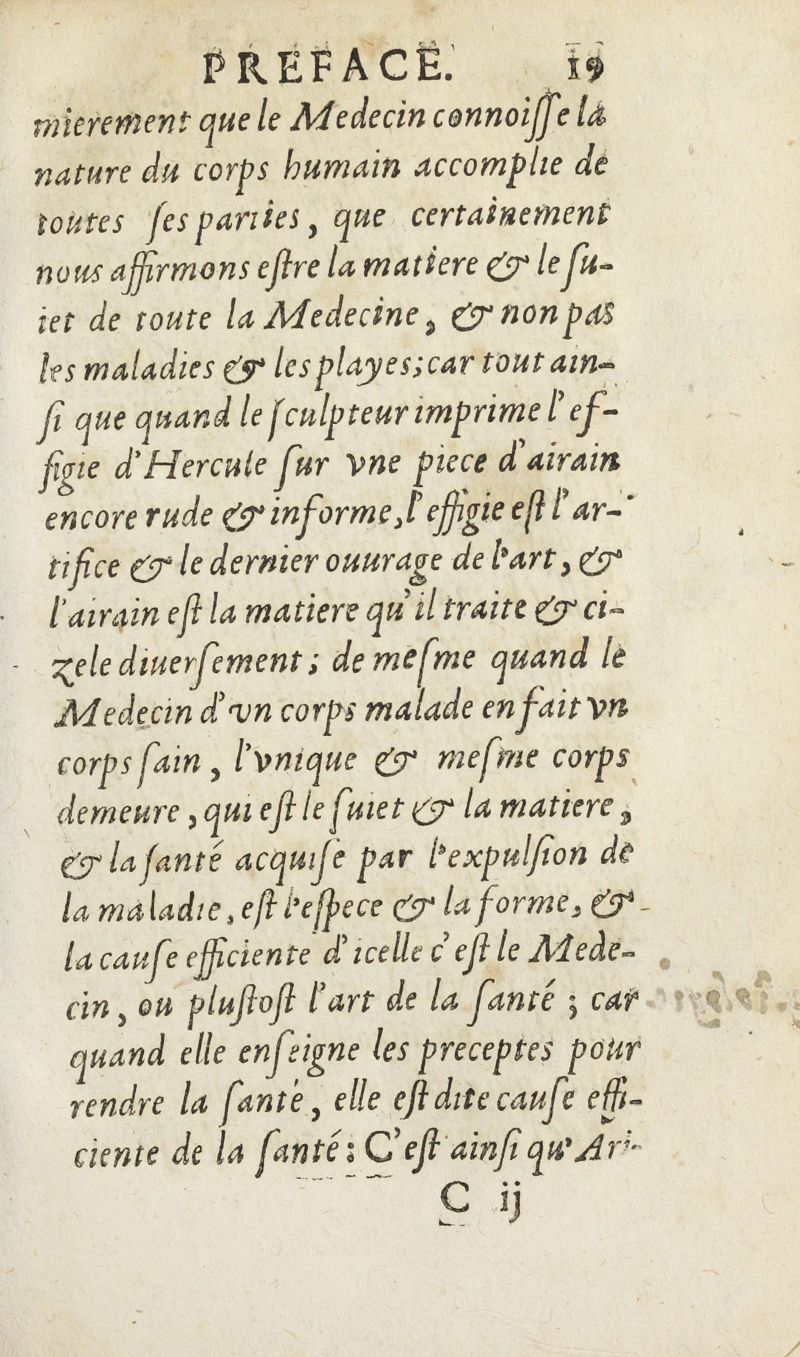 PREFACE. 19
mierement que le Medecin connoiſſe la
nature du corps humain accomplie de
toutes ſes parties, que certainement
nous affirmons eſtre la matiere & le ſu-
iet de toute la Medecine, & non pas
les maladies & les playes; car tout ain-
ſi que quand le ſculpteur imprime l'ef-
figie d'Hercule ſur vne piece d'airain
encore rude & informe, l'effigie eſt l'ar-
tifice & le dernier ouurage de l'art, &
l'airain eſt la matiere qu'il traite & ci-
zele diuerſement; de meſme quand le
Medecin d'vn corps malade en fait vn
corps ſain, l'vnique & meſme corps
demeure, qui eſt le ſuiet & la matiere,
& la ſanté acquiſe par l'expulſion de
la maladie, eſt l'eſpece & la forme, &
la cauſe efficiente d'icelle c'eſt le Mede-
cin, ou pluſtoſt l'art de la ſanté; car
quand elle enſeigne les preceptes pour
rendre la ſanté, elle eſt dite cauſe effi-
ciente de la ſanté: C'eſt ainſi qu'Ari-
C ij